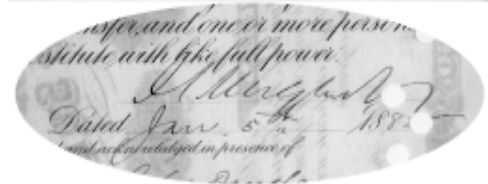 nsfer, and one or more person
stitute with like full power.
Dated Jan. 5th 188
and acknowledged in presence of